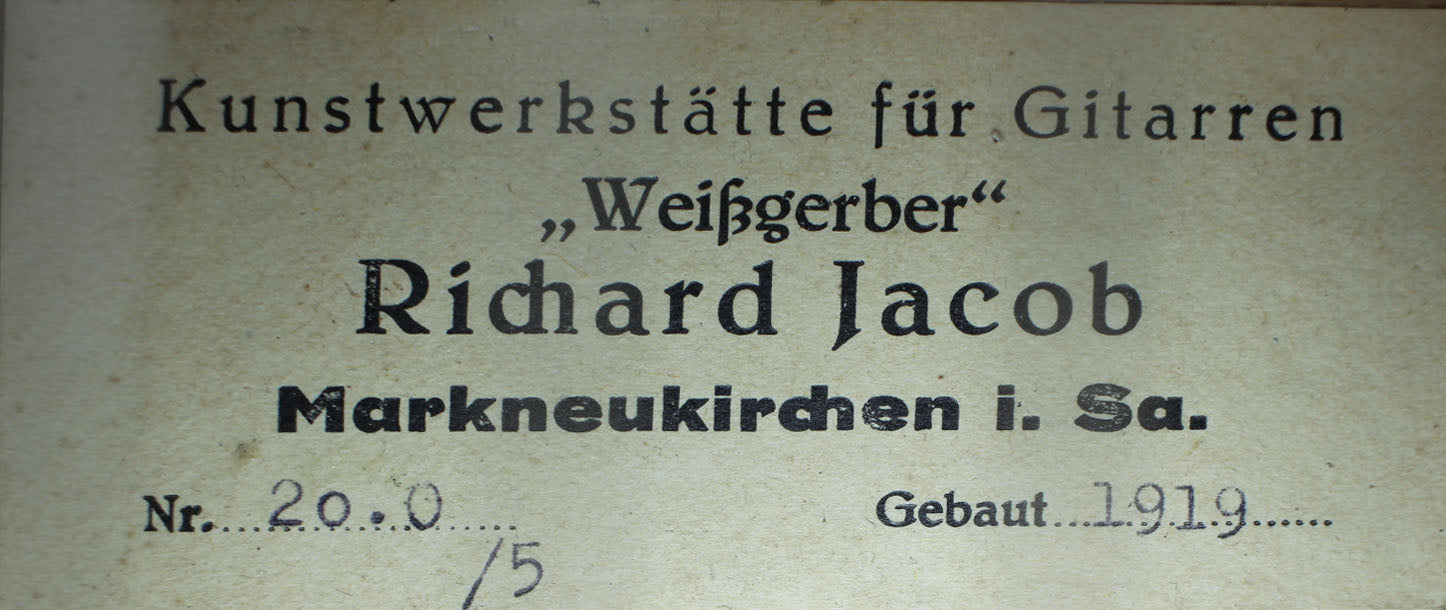 Kunstwerkstätte für Gitarren
„Weißgerber“
Richard Jacob
Markneukirchen i. Sa.
Nr. 20.0 Gebaut 1919
/5